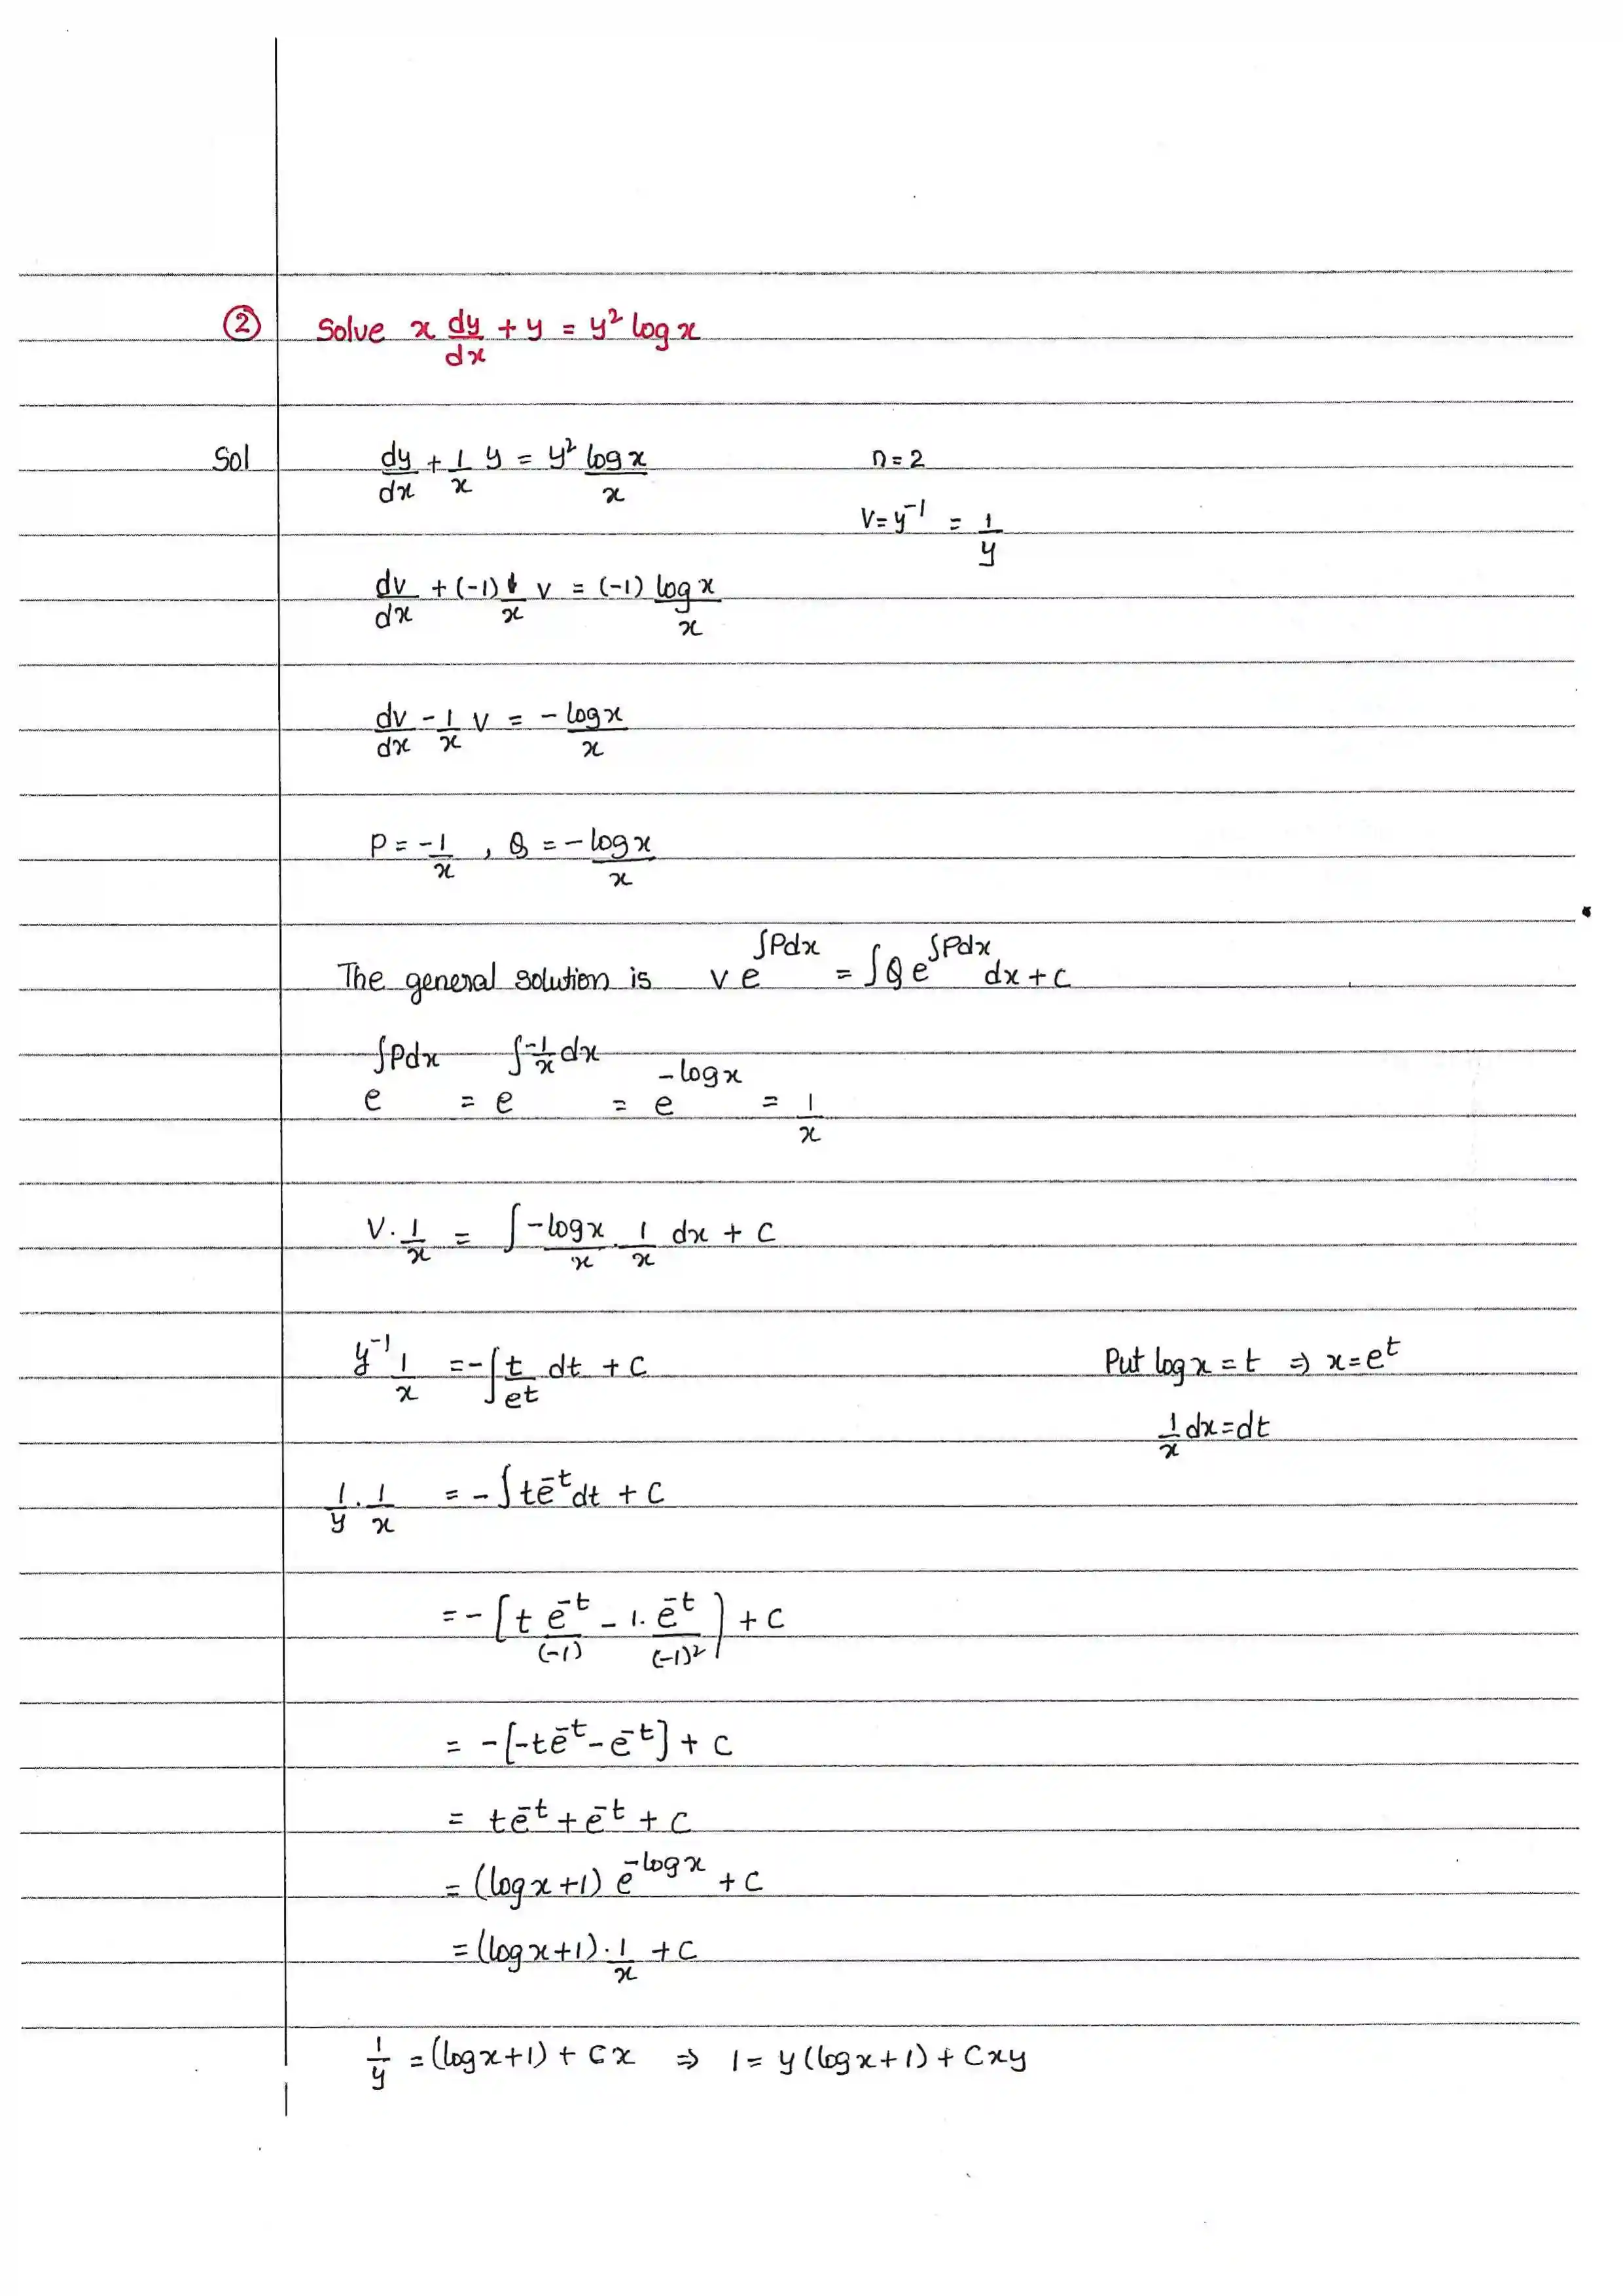 ② Solve x dy/dx + y = y² log x
Sol dy/dx + 1/x y = y² log x/x n = 2
V = y⁻¹ = 1/y
dv/dx + (-1) 1/x v = (-1) log x/x
dv/dx - 1/x v = - log x/x
P = -1/x , Q = - log x/x
The general solution is v e^∫Pdx = ∫Q e^∫Pdx dx + c
e^∫Pdx = e^∫-1/x dx = e^-log x = 1/x
V · 1/x = ∫ -log x/x · 1/x dx + c
y⁻¹ 1/x = - ∫ t/et dt + c Put log x = t ⇒ x = e^t
1/x dx = dt
1/y · 1/x = - ∫ t e^-t dt + c
= - [t e^-t/(-1) - 1. e^-t/(-1)²] + c
= - [-t e^-t - e^-t] + c
= t e^-t + e^-t + c
= (log x + 1) e^-log x + c
= (log x + 1) · 1/x + c
1/y = (log x + 1) + c x ⇒ 1 = y (log x + 1) + c x y